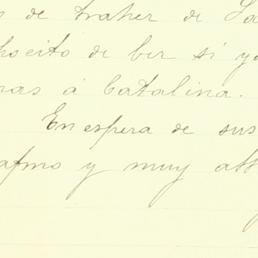 de traher de
de ber si
á Catalina.
En espera de sus
afmo y muy att